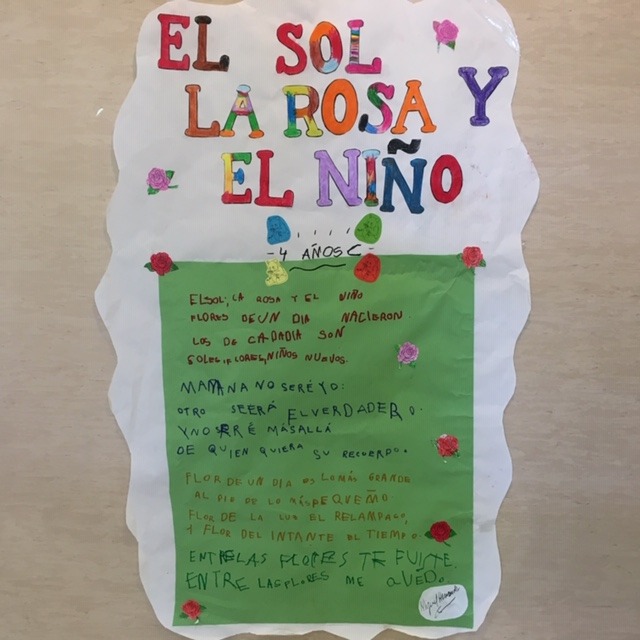 EL SOL
LA ROSA Y
EL NIÑO
-4 AÑOS C-
ELSOL, LA ROSA Y EL NIÑO
FLORES DE UN DIA NACIERON.
LOS DE CADADIA SON
SOLES, FLORES, NIÑOS NUEVOS.
MAÑANA NO SERÉ YO:
OTRO SEERÁ EL VERDADERO.
Y NO SERÉ MÁS ALLÁ
DE QUIEN QUIERA SU RECUERDO.
FLOR DE UN DIA ES LO MÁS GRANDE
AL PIE DE LO MÁS PEQUEÑO.
FLOR DE LA LUZ EL RELAMPAGO,
Y FLOR DEL INTANTE EL TIEMPO.
ENTRE LAS FLORES TE FUISTE.
ENTRE LAS FLORES ME QUEDO.
Miguel Hernández